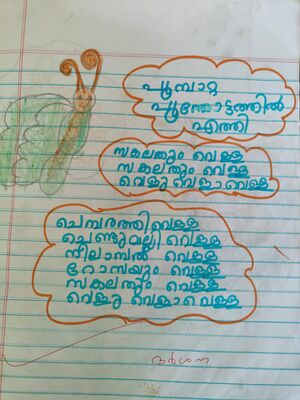 പൂമ്പാറ്റ
പൂന്തോട്ടത്തിൽ
എത്തി
സകലതും വെള്ള
സകലതും വെള്ള
വെളു വെളാവെള്ള
ചെമ്പരത്തിവെള്ള
ചെണ്ടുവല്ലി വെള്ള
നീലാമ്പൽ വെള്ള
റോസയും വെള്ള
സകലതും വെള്ള
വെളു വെളാവെള്ള
ദർശന